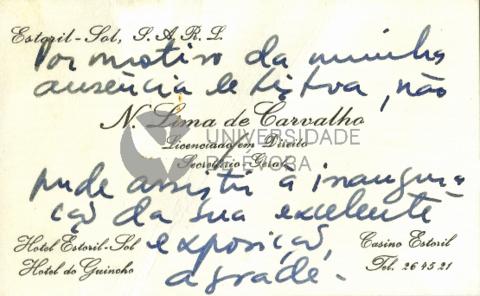 Estoril-Sol, S.A.R.L.
Por motivo da minha
ausência de Lisboa, não
N. Lima de Carvalho
Licenciado em Direito
Secretário-Geral
UNIVERSIDADE
DE ÉVORA
pude assistir à inaugura
ção da sua excelente
Hotel Estoril-Sol
exposição,
Casino Estoril
Hotel do Guincho
agrade-
Tel. 264521